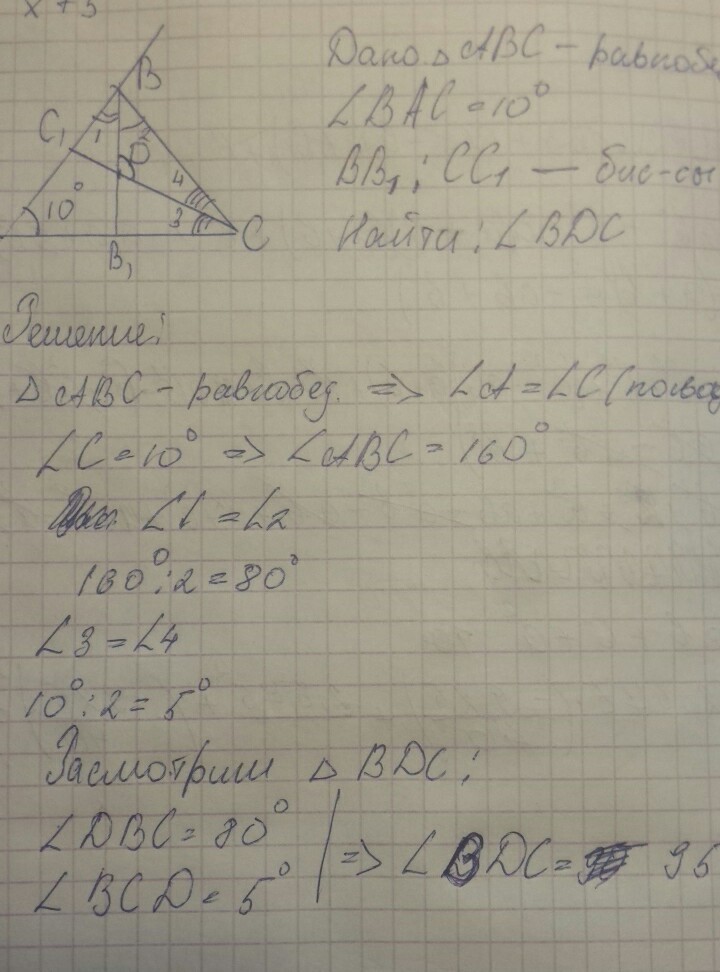 x + 3
B
C₁
1
2
D
4
3
10°
B₁
C
Дано △ ABC - равнобе
∠BAC = 10°
BB₁; CC₁ — бис-сы
Найти: ∠BDC
Решение:
△ ABC - равнобед. => ∠A = ∠C (по
∠C = 10° => ∠ABC = 160°
∠1 = ∠2
160° : 2 = 80°
∠3 = ∠4
10° : 2 = 5°
Рассмотрим △ BDC:
∠DBC = 80°
∠BCD = 5°
=> ∠BDC = 95